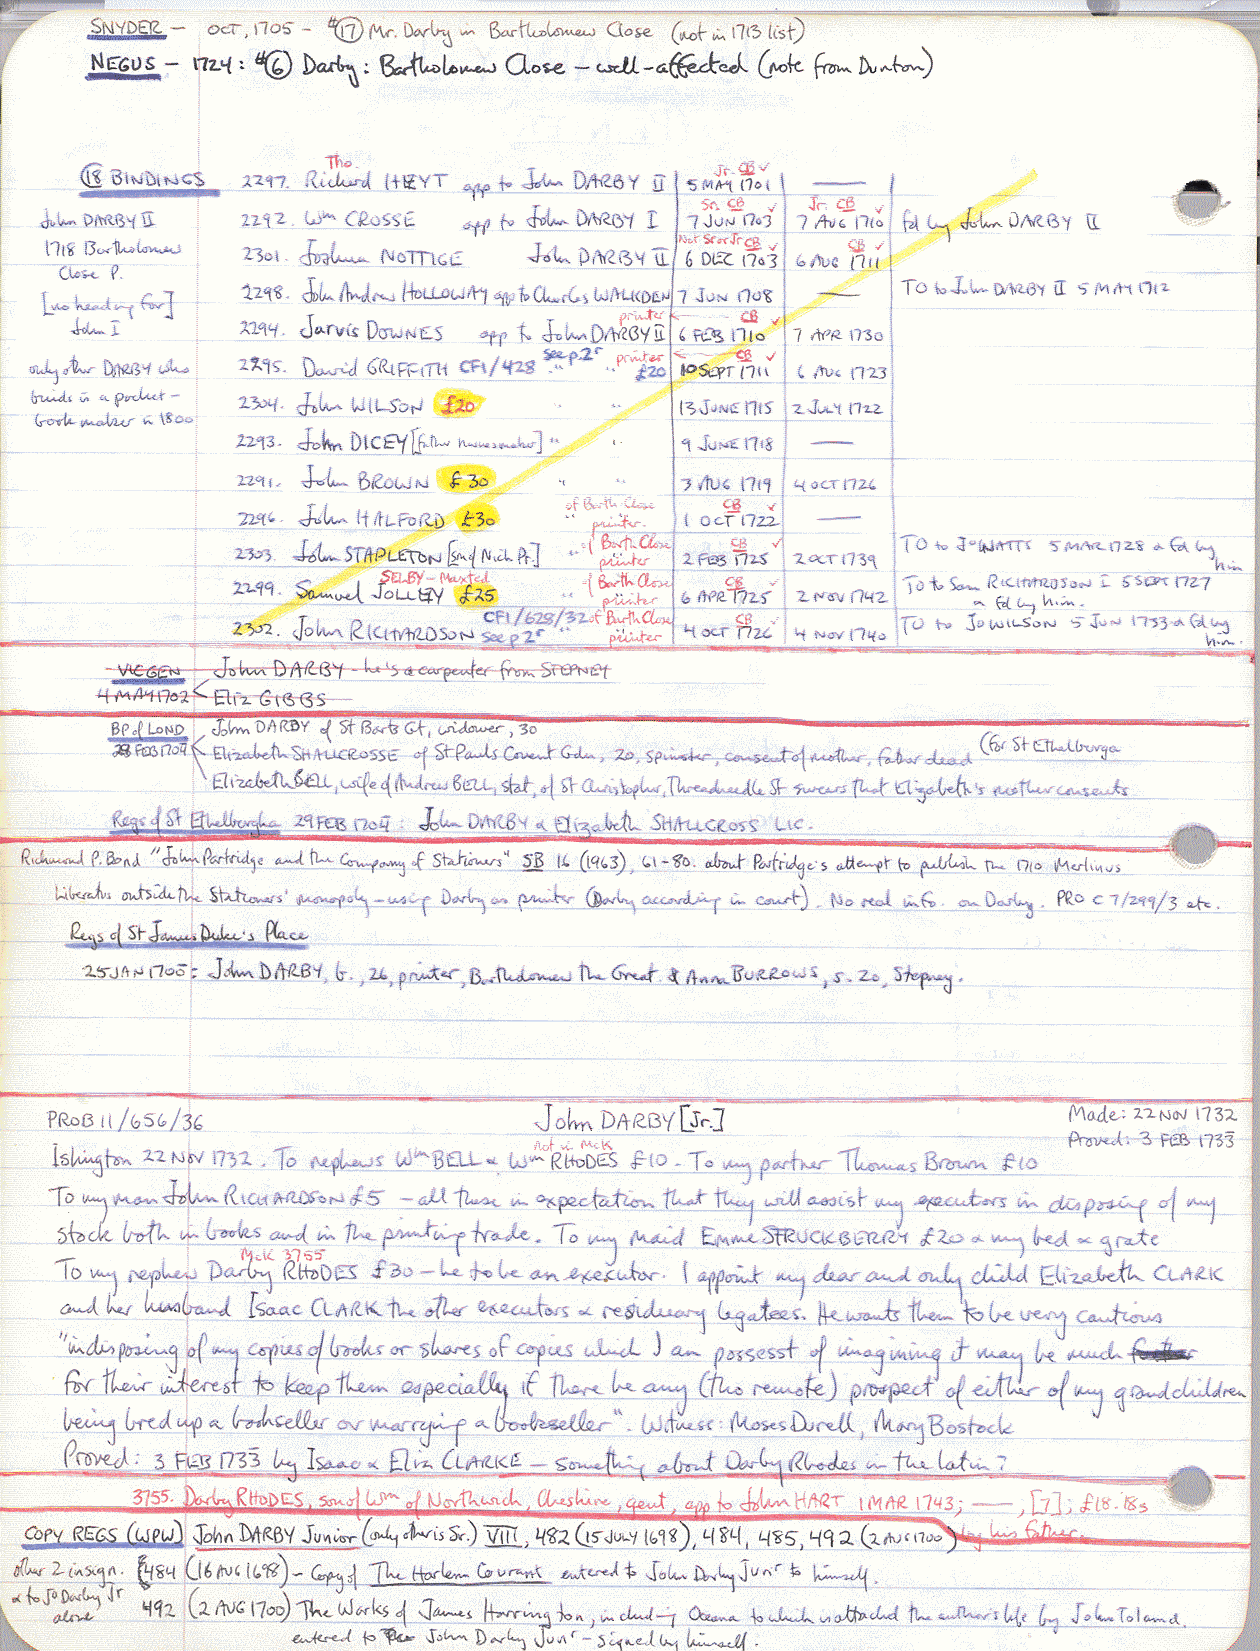 SNYDER – OCT, 1705 – #17 Mr. Darby in Bartholomew Close (not in 1713 list)
NEGUS – 1724: #6 Darby: Bartholomew Close – well-affected (note from Dunton)
Tho. Jr. CB ✓
18 BINDINGS 2297. Richard HEYT app to John DARBY II 5 MAY 1701 —
Sr. CB ✓ Jr. CB ✓
John DARBY II 2292. Wm CROSSE app to John DARBY I 7 JUN 1703 7 AUG 1710 fd by John DARBY II
Not Sr or Jr CB ✓ CB ✓
1718 Bartholomew 2301. Joshua NOTTIGE John DARBY II 6 DEC 1703 6 AUG 1711
Close P.
[no heading for] 2298. John Andrew HOLLOWAY app to Charles WALKDEN 7 JUN 1708 — TO to John DARBY II 5 MAY 1712
printer CB ✓
John I 2294. Jarvis DOWNES app to John DARBY II 6 FEB 1710 7 APR 1730
see p.2r printer CB ✓
only other DARBY who 2295. David GRIFFITH CF1/428 " " £20 10 SEPT 1711 6 AUG 1723
binds is a pocket- 2304. John WILSON £20 " " 13 JUNE 1715 2 JULY 1722
book maker in 1800
2293. John DICEY [father harnessmaker] " " 9 JUNE 1718 —
2291. John BROWN £30 " " 3 AUG 1719 4 OCT 1726
of Barth Close CB ✓
2296. John HALFORD £30 " printer. 1 OCT 1722 —
of Barth Close CB ✓
2303. John STAPLETON [son of Nich Pr.] " printer 2 FEB 1725 2 OCT 1739 TO to Jo WATTS 5 MAR 1728 & fd by him
SELBY – Maxted of Barth Close CB ✓
2299. Samuel JOLLEY £25 printer 6 APR 1725 2 NOV 1742 TO to Sam RICHARDSON I 5 SEPT 1727 & fd by him.
CF1/628/32 of Barth Close CB ✓
2302. John RICHARDSON see p 2r " printer 4 OCT 1726 4 NOV 1740 TO to Jo WILSON 5 JUN 1733 & fd by him.
VIC GEN John DARBY – he's a carpenter from STEPNEY
4 MAY 1702 Eliz GIBBS
BP of LOND John DARBY of St Barts Gt, widower, 30
28 FEB 1704 Elizabeth SHALLCROSSE of St Pauls Covent Gdn, 20, spinster, consent of mother, father dead (for St Ethelburga
Elizabeth BELL, wife of Andrew BELL, stat, of St Christopher, Threadneedle St swears that Elizabeth's mother consents
Regs of St Ethelburgha 29 FEB 1704: John DARBY & Elizabeth SHALLCROSS LIC.
Richmond P. Bond "John Partridge and the Company of Stationers" SB 16 (1963), 61-80. about Partridge's attempt to publish the 1710 Merlinus
Liberatus outside the Stationers' monopoly – using Darby as printer (Darby according in court). No real info. on Darby. PRO C 7/299/3 etc.
Regs of St James Duke's Place
25 JAN 1700: John DARBY, b., 26, printer, Bartholomew the Great & Anna BURROWS, s. 20, Stepney.
PROB 11/656/36 John DARBY [Jr.] Made: 22 NOV 1732
Proved: 3 FEB 1733
not in McK
Islington 22 NOV 1732. To nephews Wm BELL & Wm RHODES £10 – To my partner Thomas Brown £10
To my man John RICHARDSON £5 – all these in expectation that they will assist my executors in disposing of my
stock both in books and in the printing trade. To my maid Emme STRUCKBERRY £20 & my bed & grate
McK 3755
To my nephew Darby RHODES £30 – he to be an executor. I appoint my dear and only child Elizabeth CLARK
and her husband Isaac CLARK the other executors & residuary legatees. He wants them to be very cautious
"in disposing of my copies of books or shares of copies which I am possesst of imagining it may be much
for their interest to keep them especially if there be any (tho remote) prospect of either of my grandchildren
being bred up a bookseller or marrying a bookseller". Witness: Moses Durell, Mary Bostock
Proved: 3 FEB 1733 by Isaac & Eliz CLARKE – something about Darby Rhodes in the latin?
3755. Darby RHODES, son of Wm of Northwich, Cheshire, gent, app to John HART 1 MAR 1743; —, [7]; £18.18s
by his father.
COPY REGS (WPW) John DARBY Junior (only other is Sr.) VIII, 482 (15 JULY 1698), 484, 485, 492 (2 AUG 1700)
other 2 in sign. 484 (16 AUG 1698) – Copy of The Harlem Courant entered to John Darby Junr to himself.
& to Jo Darby Jr alone 492 (2 AUG 1700) The Works of James Harrington, including Oceana to which is attached the author's life by John Toland.
entered to John Darby Junr – signed by himself.